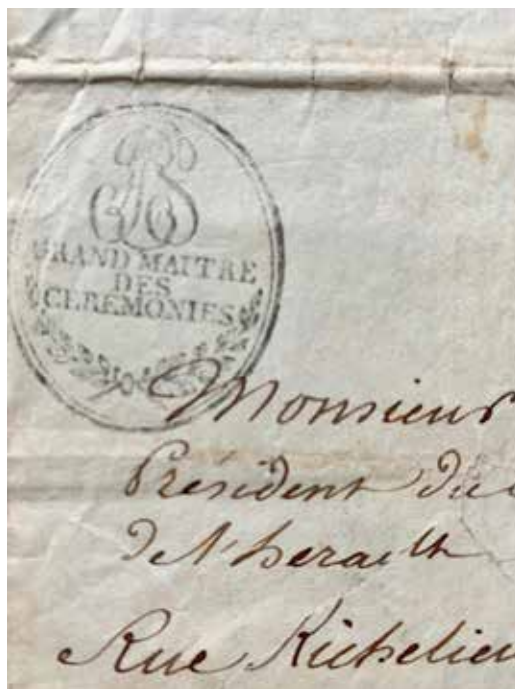 GRAND MAITRE
DES
CEREMONIES
Monsieur
Président du
de l'herault
Rue Richelieu